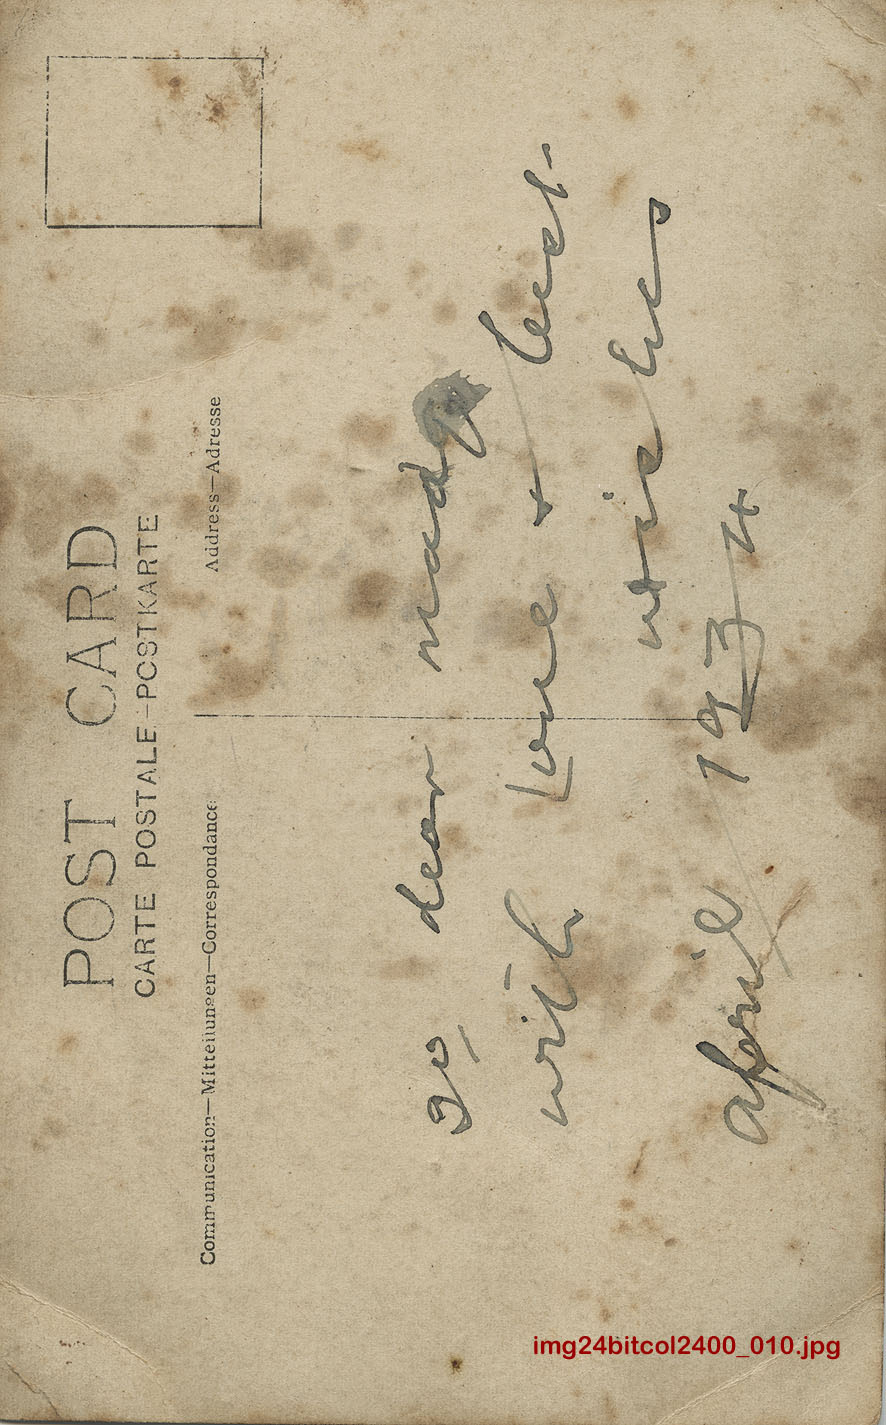 POST CARD
CARTE POSTALE—POSTKARTE
Communication—Mitteilungen—Correspondance
Address—Adresse
To dear
with love + best
wishes
April 1934
img24bitcol2400_010.jpg